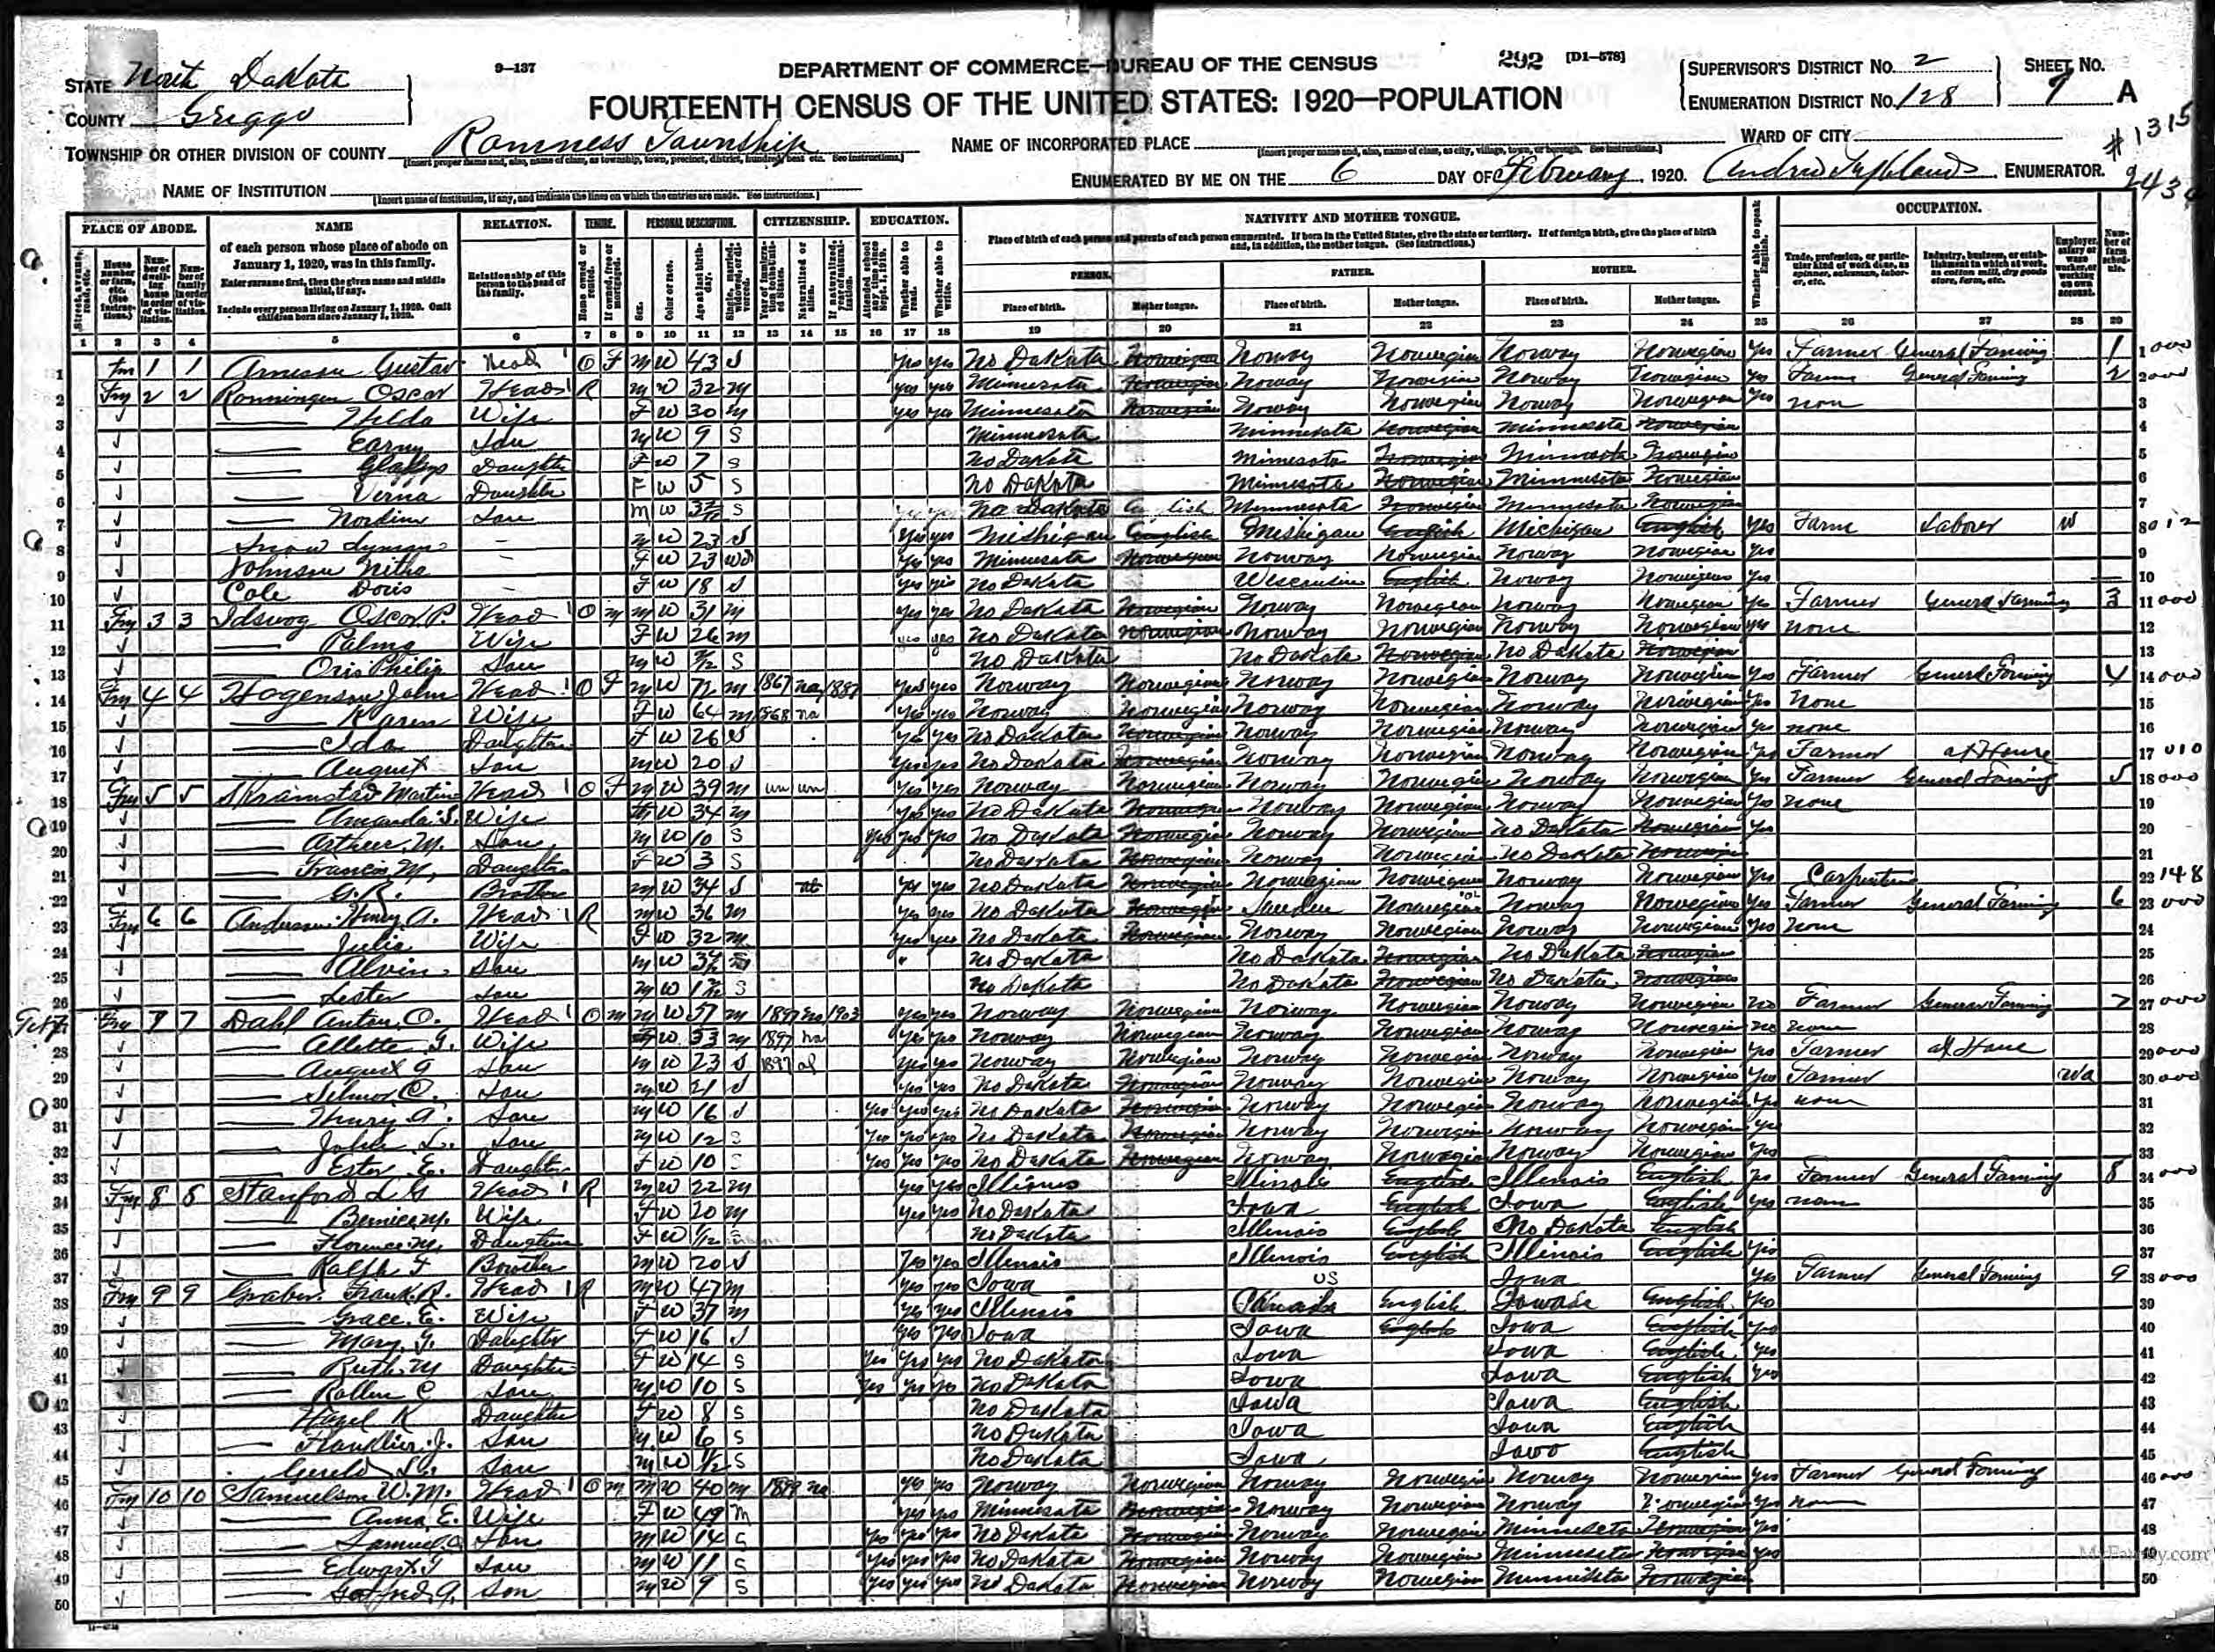 9—137
DEPARTMENT OF COMMERCE—BUREAU OF THE CENSUS
292 [D1-578]
STATE North Dakota
COUNTY Griggs
FOURTEENTH CENSUS OF THE UNITED STATES: 1920—POPULATION
SUPERVISOR'S DISTRICT NO. 2
ENUMERATION DISTRICT NO. 128
SHEET NO. A
TOWNSHIP OR OTHER DIVISION OF COUNTY Romness Township
NAME OF INCORPORATED PLACE
WARD OF CITY
NAME OF INSTITUTION
ENUMERATED BY ME ON THE 6 DAY OF February, 1920. ENUMERATOR.
PLACE OF ABODE. NAME RELATION. TENURE. PERSONAL DESCRIPTION. CITIZENSHIP. EDUCATION. NATIVITY AND MOTHER TONGUE. OCCUPATION.
of each person whose place of abode on January 1, 1920, was in this family.
Enter surname first, then the given name and middle initial, if any.
Include every person living on January 1, 1920. Omit children born since January 1, 1920.
Relationship of this person to the head of the family.
Place of birth of each person and parents of each person enumerated. If born in the United States, give the state or territory. If of foreign birth, give the place of birth and, in addition, the mother tongue. (See Instructions.)
PERSON. FATHER. MOTHER.
Place of birth. Mother tongue. Place of birth. Mother tongue. Place of birth. Mother tongue.
1 2 3 4 5 6 7 8 9 10 11 12 13 14 15 16 17 18 19 20 21 22 23 24 25 26 27 28 29
1 Fm 1 1 Arneson Gustav Head O F M W 43 S yes yes No Dakota Norwegian Norway Norwegian Norway Norwegian yes Farmer General Farming 1
2 Fm 2 2 Ronningen Oscar Head R M W 32 M yes yes Minnesota Norwegian Norway Norwegian Norway Norwegian yes General Farming 2
3 Hilda Wife F W 30 M yes yes Minnesota Norwegian Norway Norwegian Norway Norwegian yes
4 Son M W 9 S Minnesota Minnesota Norwegian Minnesota Norwegian
5 Gladys Daughter F W 7 S No Dakota Minnesota Norwegian Minnesota Norwegian
6 Verna Daughter F W 5 S No Dakota Minnesota Norwegian Minnesota Norwegian
7 Son M W S No Dakota English Minnesota Norwegian Minnesota Norwegian
8 Snow Lyman M W 23 S yes yes Michigan English Michigan English Michigan English yes Farm Laborer W
9 Johnson F W 23 Wd yes yes Minnesota Norwegian Norway Norwegian Norway Norwegian yes
10 Cole Doris F W 18 S yes yes No Dakota Wisconsin English Norway Norwegian yes
11 Fm 3 3 Oscar P. Head O M M W 31 M yes yes No Dakota Norwegian Norway Norwegian Norway Norwegian yes Farmer General Farming 3
12 Palma Wife F W 26 M yes yes No Dakota Norwegian Norway Norwegian Norway Norwegian yes none
13 Philip Son M W S No Dakota No Dakota Norwegian No Dakota Norwegian
14 Fm 4 4 Hogenson John Head O F M W 72 M 1867 na 1887 yes yes Norway Norwegian Norway Norwegian Norway Norwegian yes Farmer General Farming 4
15 Karen Wife F W 64 M 1868 na yes yes Norway Norwegian Norway Norwegian Norway Norwegian yes none
16 Ida Daughter F W 26 S yes yes No Dakota Norwegian Norway Norwegian Norway Norwegian yes none
17 August Son M W 20 S yes yes No Dakota Norwegian Norway Norwegian Norway Norwegian yes Farmer at Home
18 Fm 5 5 Skramstad Martin Head O F M W 39 M un un yes yes Norway Norwegian Norway Norwegian Norway Norwegian yes Farmer General Farming 5
19 Amanda S. Wife F W 34 M yes yes No Dakota Norwegian Norway Norwegian Norway Norwegian yes none
20 Arthur M. Son M W 10 S yes yes yes No Dakota Norwegian Norway Norwegian No Dakota Norwegian yes
21 Francis M. Daughter F W 3 S No Dakota Norwegian Norway Norwegian No Dakota Norwegian
22 G.R. Brother M W 34 S yes yes No Dakota Norwegian Norwegian Norwegian Norway Norwegian yes Carpenter
23 Fm 6 6 Anderson Henry A. Head R M W 36 M yes yes No Dakota Norwegian Sweden Norwegian Norway Norwegian yes Farmer General Farming 6
24 Julia Wife F W 32 M yes yes No Dakota Norwegian Norway Norwegian Norway Norwegian yes none
25 Alvin Son M W No Dakota No Dakota Norwegian No Dakota Norwegian
26 Lester Son M W S No Dakota No Dakota Norwegian No Dakota Norwegian
27 Fm 7 7 Dahl Anton O. Head O M M W 57 M 1897 na 1903 yes yes Norway Norwegian Norway Norwegian Norway Norwegian no Farmer General Farming 7
28 Allette G. Wife F W 53 M 1897 na yes yes Norway Norwegian Norway Norwegian Norway Norwegian no none
29 August G Son M W 23 S 1897 al yes yes Norway Norwegian Norway Norwegian Norway Norwegian yes Farmer at Home
30 Selmer C. Son M W 21 S yes yes No Dakota Norwegian Norway Norwegian Norway Norwegian yes Farmer Wa
31 Henry A. Son M W 16 S yes yes yes No Dakota Norwegian Norway Norwegian Norway Norwegian yes none
32 John L. Son M W 12 S yes yes yes No Dakota Norwegian Norway Norwegian Norway Norwegian yes
33 Ester E. Daughter F W 10 S yes yes yes No Dakota Norwegian Norway Norwegian Norway Norwegian yes
34 Fm 8 8 Stanford L G Head R M W 22 M yes yes Illinois Illinois English Illinois English yes Farmer General Farming 8
35 Bernice M. Wife F W 20 M yes yes No Dakota Iowa English Iowa English yes none
36 Florence M. Daughter F W 1/12 S No Dakota Illinois English No Dakota English
37 Ralph F Brother M W 20 S yes yes Illinois Illinois English Illinois English yes
38 Fm 9 9 Graber Frank R. Head R M W 47 M yes yes Iowa US Iowa yes Farmer General Farming 9
39 Grace E. Wife F W 37 M yes yes Illinois Canada English English yes
40 Mary G. Daughter F W 16 S yes yes Iowa Iowa English Iowa English yes
41 Ruth M Daughter F W 14 S yes yes yes No Dakota Iowa Iowa English yes
42 Rollin C Son M W 10 S yes yes yes No Dakota Iowa Iowa English yes
43 Hazel K Daughter F W 8 S No Dakota Iowa Iowa English
44 Franklin J. Son M W 6 S No Dakota Iowa Iowa English
45 Gerald Son M W S No Dakota Iowa Iowa English
46 Fm 10 10 Samuelson W.M. Head O M M W 40 M 1899 na yes yes Norway Norwegian Norway Norwegian Norway Norwegian yes Farmer General Farming
47 Anna E. Wife F W 49 M yes yes Minnesota Norwegian Norway Norwegian Norway Norwegian yes none
48 Samuel O Son M W 14 S yes yes yes No Dakota Norwegian Norway Norwegian Minnesota Norwegian yes
49 Edward T Son M W 11 S yes yes yes No Dakota Norwegian Norway Norwegian Minnesota Norwegian yes
50 Gotfred A. Son M W 9 S yes yes yes No Dakota Norwegian Norway Norwegian Minnesota Norwegian
MyFamily.com